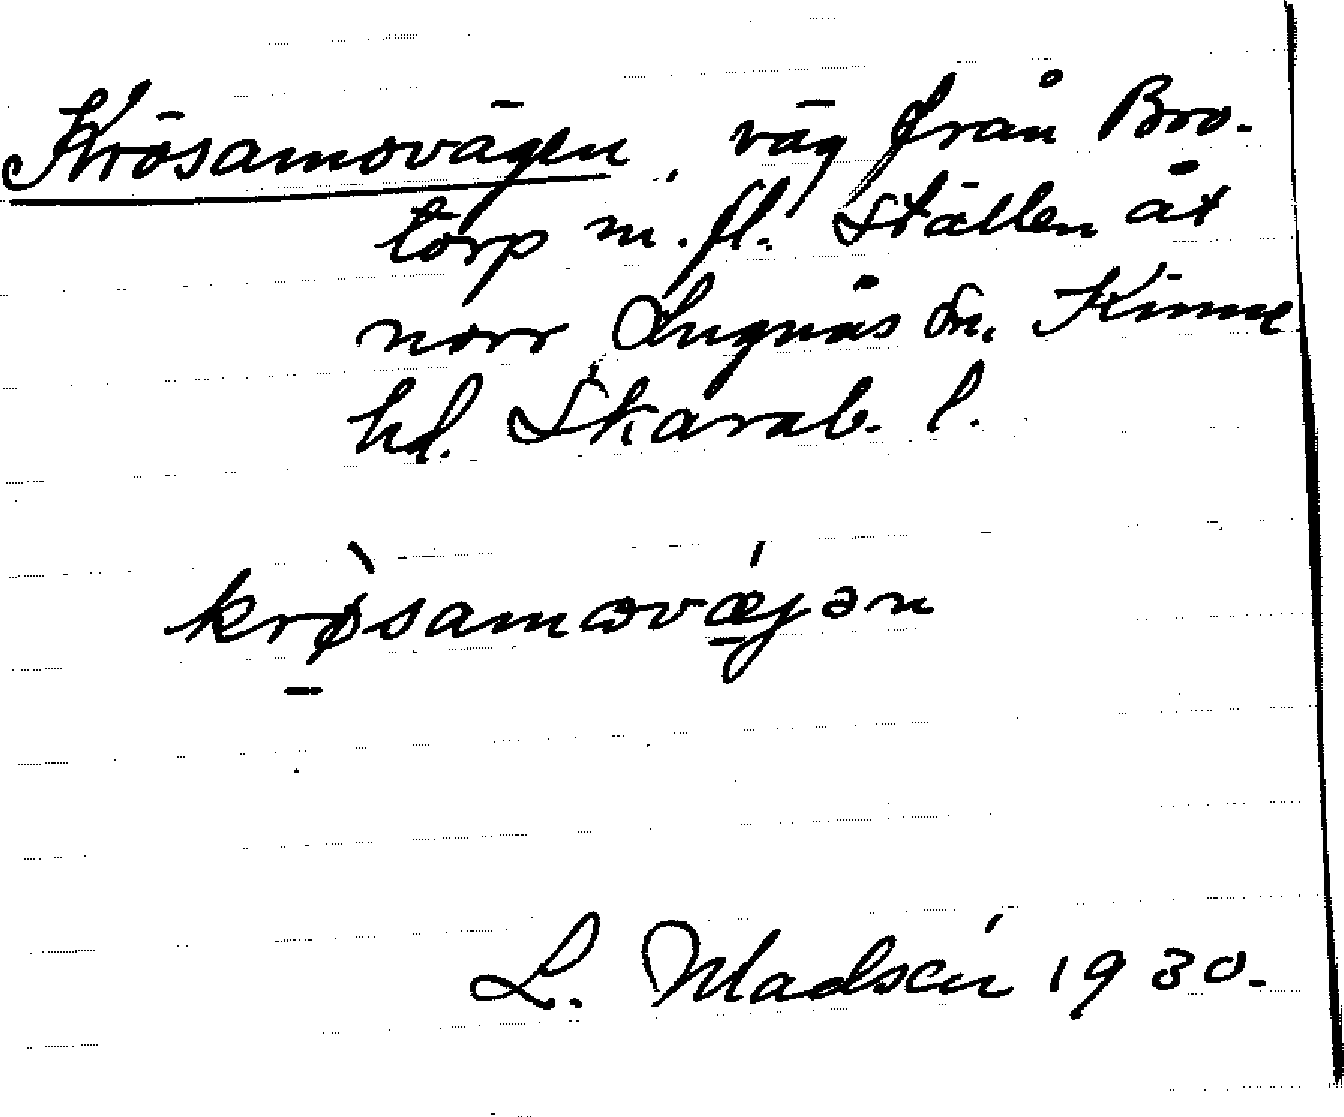 Krösamovägen, väg från Bro-
torp m. fl. ställen åt
norr Lugnås sn, Kinne
hd. Skarab. l.
krø̀samovǽjən
L. Madsén 1930.